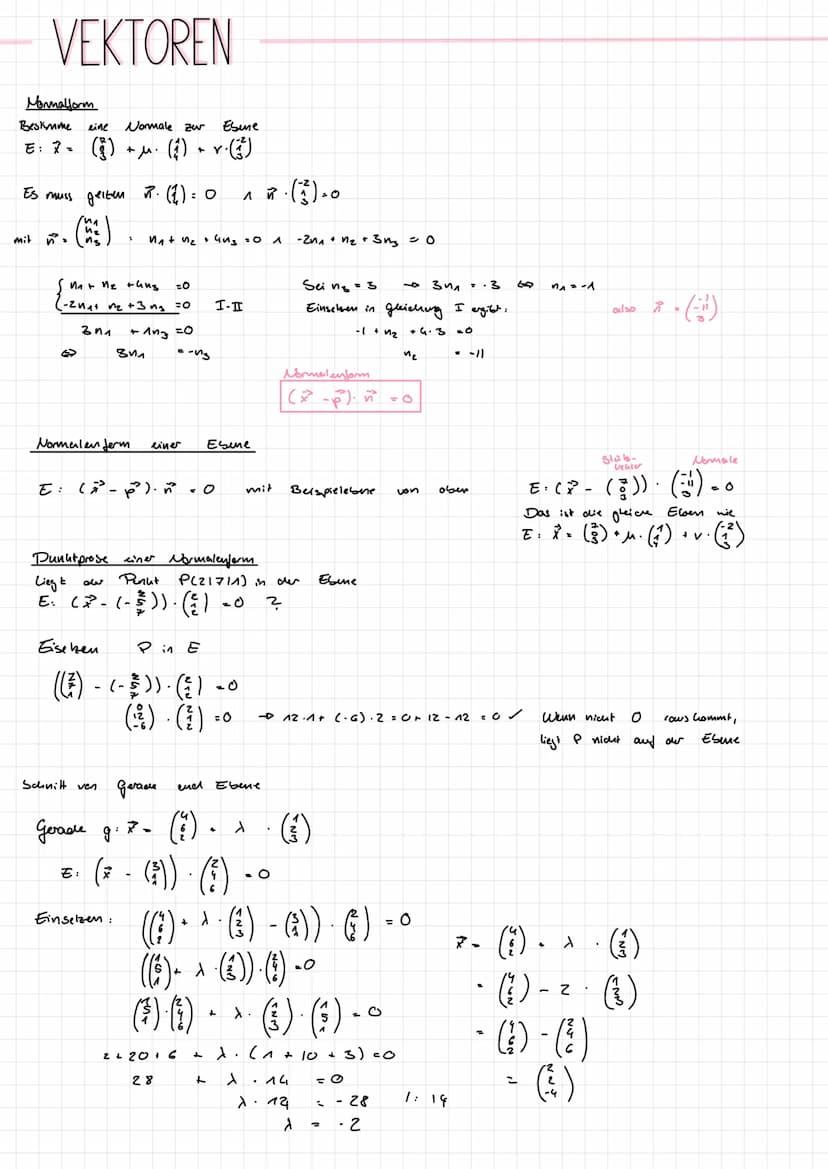 VEKTOREN
Normalform
Bestimme eine Normale zur Ebene
E: x⃗ = + μ · (1 1 4) + v · (-2 1 3)
Es muss gelten n⃗ · (1 1 4) = 0 ∧ n⃗ · (-2 1 3) = 0
mit n⃗ = (n1 n2 n3) : n1 + n2 + 4n3 = 0 ∧ -2n1 + n2 + 3n3 = 0
n1 + n2 + 4n3 = 0
-2n1 + n2 + 3n3 = 0 I-II
3n1 + 1n3 = 0
⇔ 3n1 = -n3
Sei n3 = 3 → 3n1 = -3 ⇔ n1 = -1
Einsetzen in Gleichung I ergibt:
-1 + n2 + 4·3 = 0
n2 = -11
also n⃗ = (-1 -11 3)
Normalenform
(x⃗ - p⃗) · n⃗ = 0
Normalenform einer Ebene
E: (x⃗ - p⃗) · n⃗ = 0 mit Beispielebene von oben
Stütz-
vektor
Normale
E: (x⃗ - ) · (-1 -11 3) = 0
Das ist die gleiche Eben wie
E: x⃗ = + μ · (1 1 4) + v · (-2 1 3)
Punktprobe einer Normalenform
Liegt der Punkt P(2|7|1) in der Ebene
E: (x⃗ - (2 -5 7)) · (2 1 2) = 0 ?
Eisetzen P in E
((2 7 1) - (2 -5 7)) · (2 1 2) = 0
(0 12 -6) · (2 1 2) = 0 → 12·1 + (-6)·2 = 0 + 12 - 12 = 0 ✓
Wenn nicht 0 raus kommt,
liegt P nicht auf der Ebene
Schnitt von Gerade und Ebene
Gerade g: x⃗ = (4 6 2) + λ · (1 2 3)
E: (x⃗ - (3 1 1)) · (2 4 6) = 0
Einsetzen: ((4 6 2) + λ · (1 2 3) - (3 1 1)) · (2 4 6) = 0
((1 5 1) + λ · (1 2 3)) · (2 4 6) = 0
(1 5 1) · (2 4 6) + λ · (1 2 3) · (1 5 1) = 0
2 + 20 + 6 + λ · (1 + 10 + 3) = 0
28 + λ · 14 = 0
λ · 14 = -28 |: 14
λ = -2
x⃗ = (4 6 2) + λ · (1 2 3)
= (4 6 2) - 2 · (1 2 3)
= (4 6 2) - (2 4 6)
= (2 2 -4)